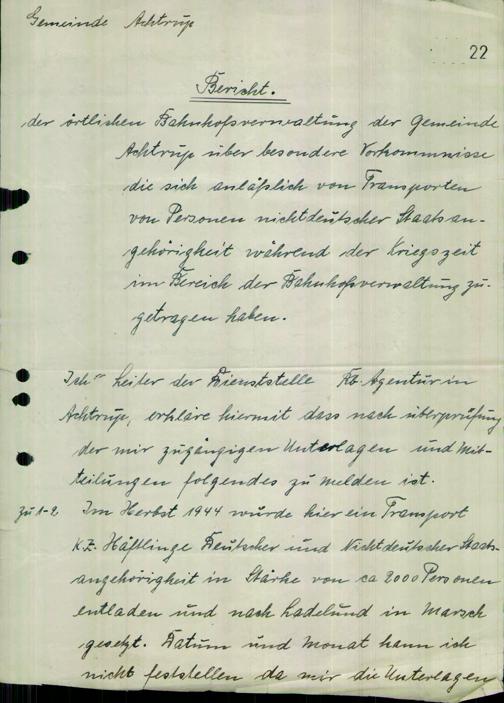 Gemeinde Achtrup
22
Bericht.
der örtlichen Bahnhofsverwaltung der Gemeinde
Achtrup über besondere Vorkommnisse
die sich anläßlich von Transporten
von Personen nichtdeutscher Staatsan-
gehörigkeit während der Kriegszeit
im Bereich der Bahnhofsverwaltung zu-
getragen haben.
Ich Leiter der Dienststelle Kb. Agentur in
Achtrup, erkläre hiermit dass nach überprüfung
der mir zugängigen Unterlagen und Mit-
teilungen folgendes zu melden ist.
zu 1-2 Im Herbst 1944 wurde hier ein Transport
K.Z. Häftlinge Deutscher und Nichtdeutscher Staats-
angehörigkeit in Stärke von ca 2000 Personen
entladen und nach Ladelund in Marsch
gesetzt. Datum und Monat kann ich
nicht feststellen da mir die Unterlagen